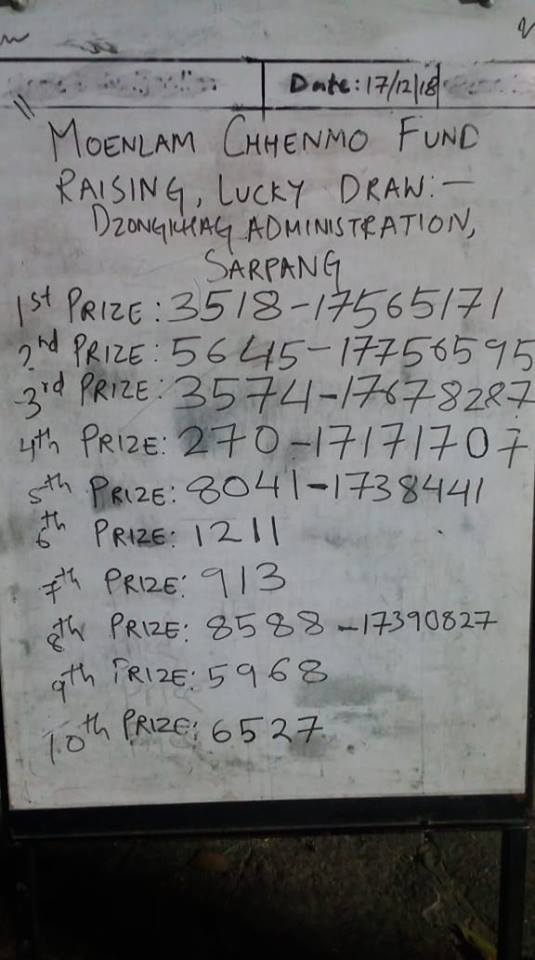 Date: 17/12/18
MOENLAM CHHENMO FUND
RAISING, LUCKY DRAW:-
DZONGKHAG ADMINISTRATION,
SARPANG
1st PRIZE: 3518-17565171
2nd PRIZE: 5645-17756595
3rd PRIZE: 3574-17678287
4th PRIZE: 270-17171707
5th PRIZE: 8041-1738441
6th PRIZE: 1211
7th PRIZE: 913
8th PRIZE: 8588-17390827
9th PRIZE: 5968
10th PRIZE: 6527